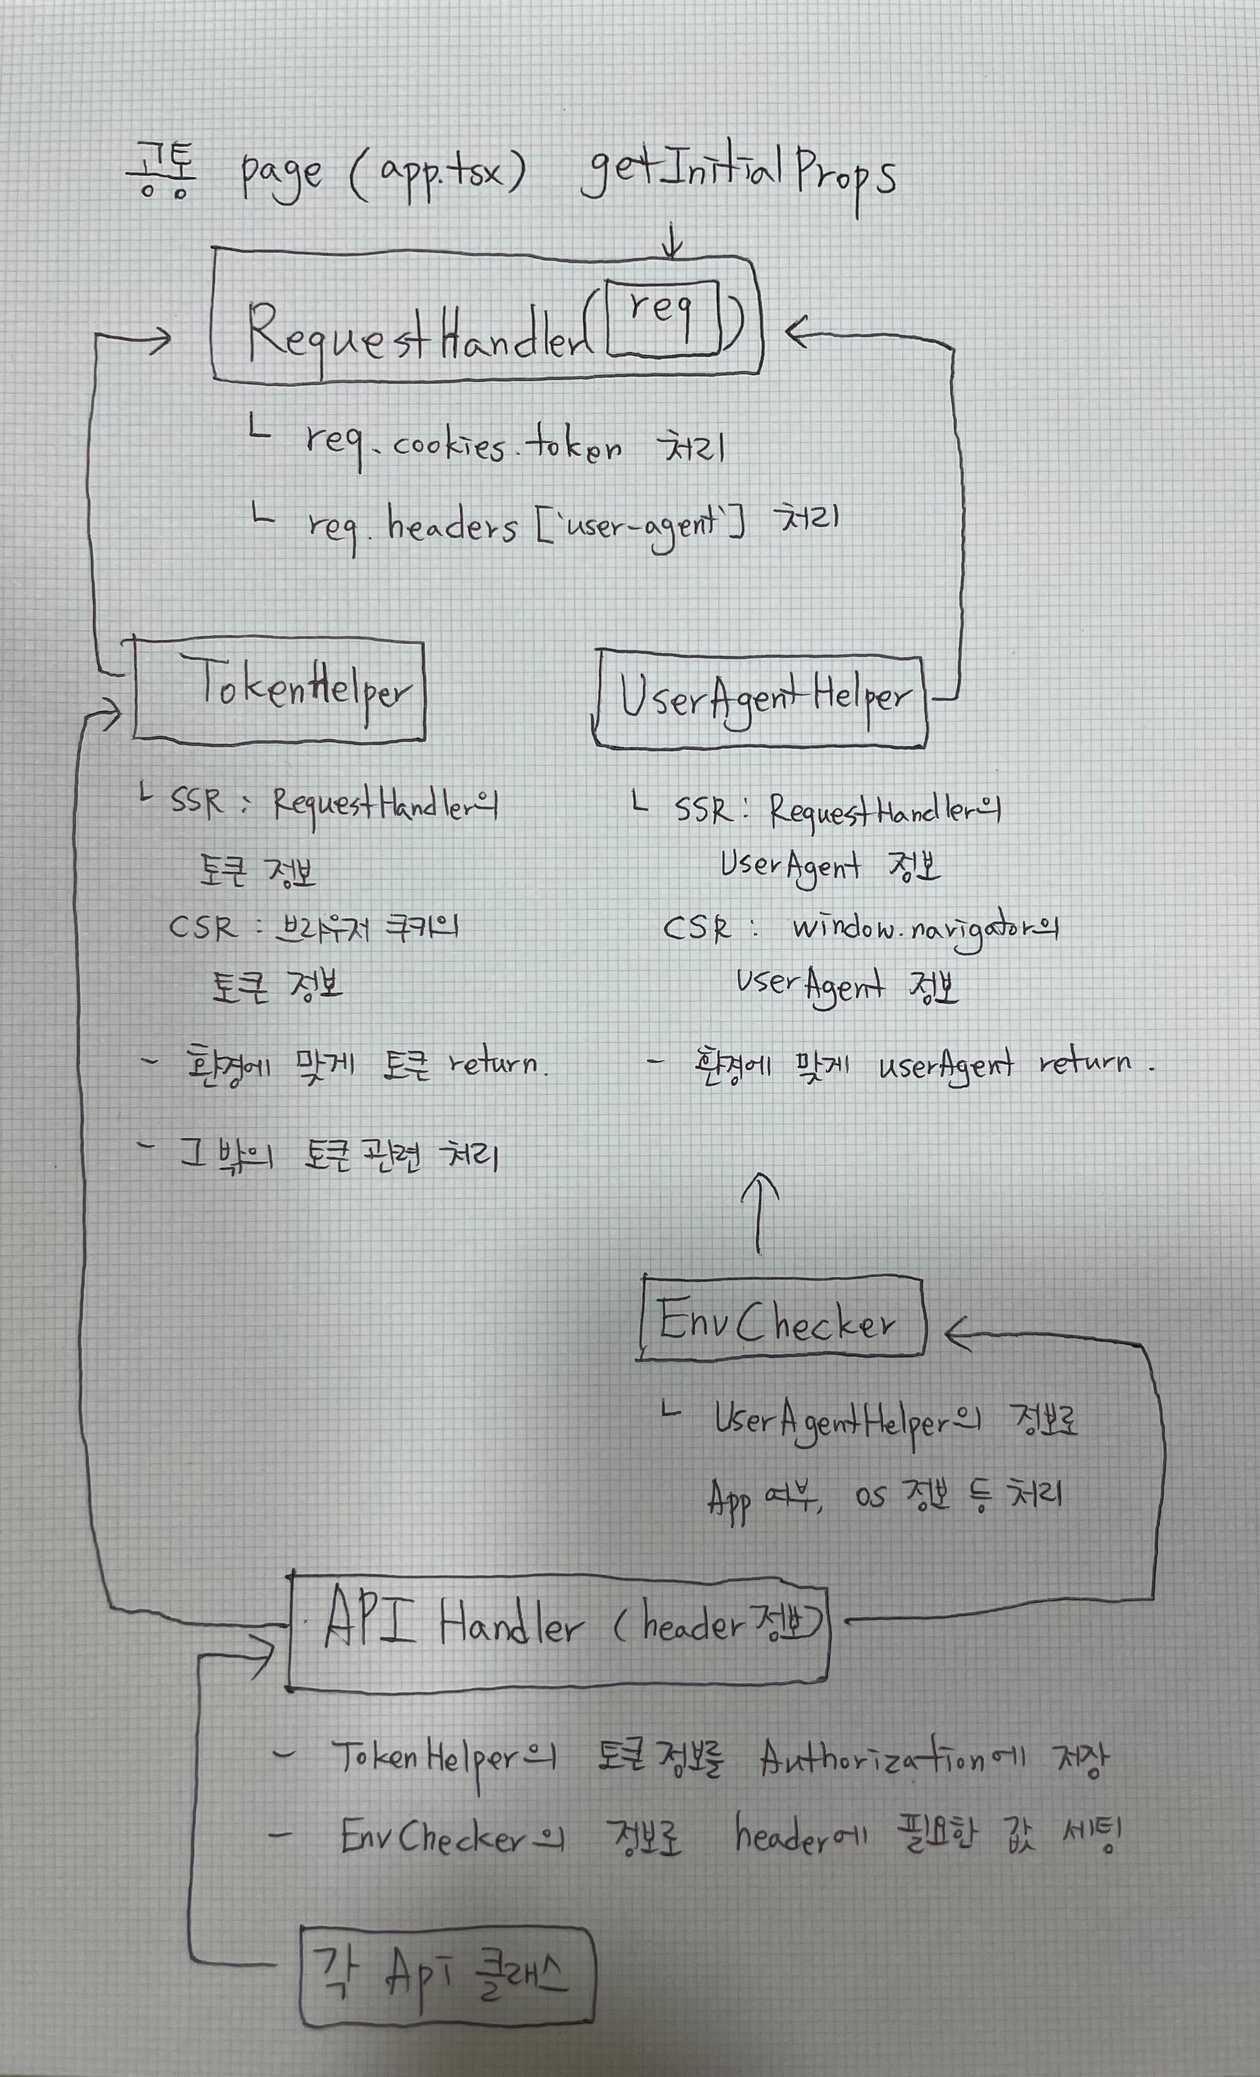 공통 page (app.tsx) getInitialProps
RequestHandler(req)
└ req.cookies.token 처리
└ req.headers ['user-agent'] 처리
TokenHelper
└ SSR : RequestHandler의
토큰 정보
CSR : 브라우저 쿠키의
토큰 정보
- 환경에 맞게 토큰 return.
- 그 밖의 토큰 관련 처리
UserAgentHelper
└ SSR : RequestHandler의
UserAgent 정보
CSR : window.navigator의
UserAgent 정보
- 환경에 맞게 userAgent return.
EnvChecker
└ UserAgentHelper의 정보로
App 여부, OS 정보 등 처리
API Handler (header 정보)
- TokenHelper의 토큰 정보를 Authorization에 저장
- EnvChecker의 정보로 header에 필요한 값 세팅
각 Api 클래스